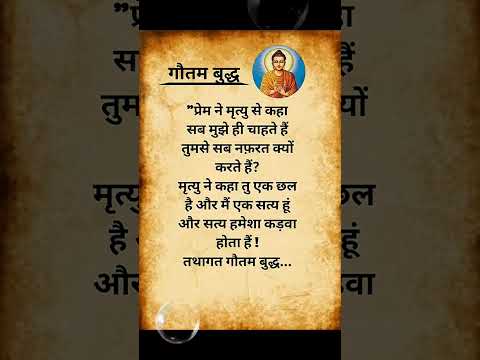 गौतम बुद्ध
"प्रेम ने मृत्यु से कहा
सब मुझे ही चाहते हैं
तुमसे सब नफ़रत क्यों
करते हैं?
मृत्यु ने कहा तु एक छल
है और मैं एक सत्य हूं
और सत्य हमेशा कड़वा
होता हैं !
तथागत गौतम बुद्ध...